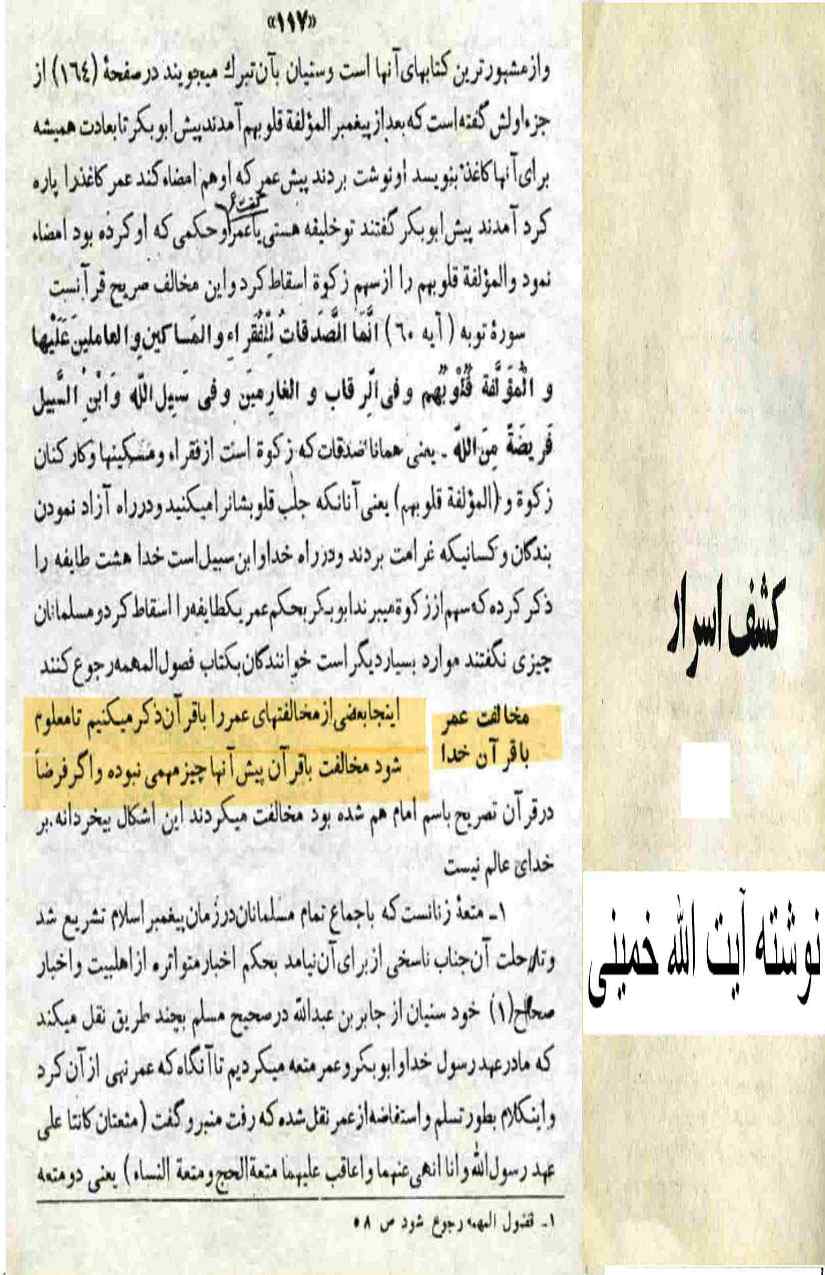 «۱۱۷»
واز مشهورترین کتابهای آنها است وسنیان بآن تبرك میجویند درصفحهٔ (۱۶۴) از
جزء اولش گفته است که بعد از پیغمبر المؤلفة قلوبهم آمدند پیش ابوبکر تا بعادت همیشه
برای آنها کاغذ بنویسد او نوشت بردند پیش عمر که او هم امضاء کند عمر کاغذرا پاره
کرد آمدند پیش ابوبکر گفتند تو خلیفه هستی یا عمر گفت او وحکمی که او کرده بود امضاء
نمود والمؤلفة قلوبهم را از سهم زکوة اسقاط کرد و این مخالف صریح قرآنست
سورهٔ توبه (آیه ۶۰) انَّمَا الصَّدَقاتُ لِلْفُقَراءِ و المَساکین و العاملینَ عَلَیْها
و الْمُؤَلَّفة قُلُوبُهم و فی الرِقاب و الغارمین و فی سَبیل اللّه وَابْن السَّبیل
فَریضَةً مِنَ اللّه ـ یعنی همانا صدقات که زکوة است از فقراء ومسکینها وکارکنان
زکوة و (المؤلفة قلوبهم) یعنی آنانکه جلب قلوبشانرا میکنید ودرراه آزاد نمودن
بندگان و کسانیکه غرامت بردند ودرراه خدا وابن سبیل است خدا هشت طایفه را
ذکر کرده که سهم از زکوة میبرند ابوبکر بحکم عمر یکطایفه را اسقاط کرد و مسلمانان
چیزی نگفتند موارد بسیار دیگر است خوانندگان بکتاب فصول المهمه رجوع کنند
مخالفت عمر
باقرآن خدا
اینجا بعضی از مخالفتهای عمر را باقرآن ذکر میکنیم تا معلوم
شود مخالفت باقرآن پیش آنها چیز مهمی نبوده واگر فرضاً
درقرآن تصریح باسم امام هم شده بود مخالفت میکردند این اشکال بیخردانه بر
خدای عالم نیست
۱ـ متعهٔ زنانست که باجماع تمام مسلمانان درزمان پیغمبر اسلام تشریع شد
وتا رحلت آن جناب ناسخی از برای آن نیامد بحکم اخبار متواتره از اهلبیت واخبار
صحاح (۱) خود سنیان از جابر بن عبدالله درصحیح مسلم بچند طریق نقل میکند
که مادرعهد رسول خدا وابوبکر و عمر متعه میکردیم تا آنگاه که عمر نهی از آن کرد
و اینکلام بطور تسلم و استفاضه از عمر نقل شده که رفت منبر و گفت (متعتان کانتا علی
عهد رسول الله و انا انهی عنهما و اعاقب علیهما متعة الحج و متعة النساء) یعنی دو متعه
۱ـ فصول المهمه رجوع شود ص ۵۸
کشف اسرار
نوشته آیت الله خمینی